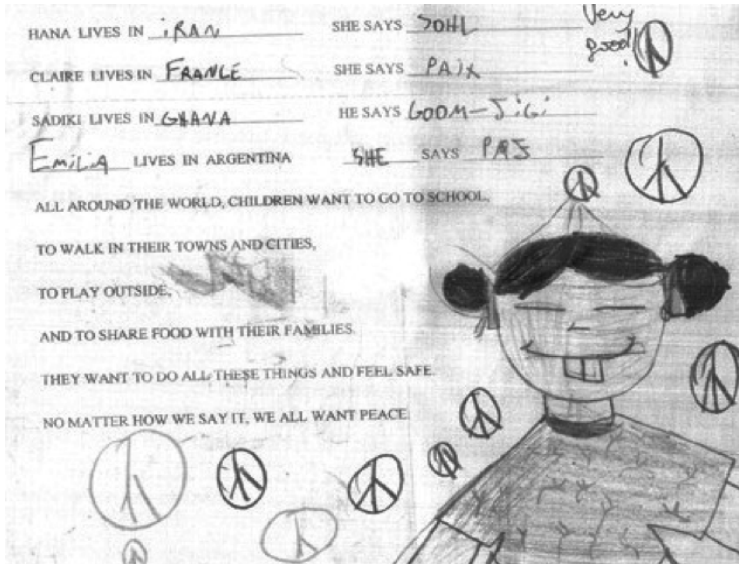 HANA LIVES IN iRAN SHE SAYS SOHL
Very good!
CLAIRE LIVES IN FRANCE SHE SAYS PAix
SADIKI LIVES IN GHANA HE SAYS GOOM-JiGi
EMiLiA LIVES IN ARGENTINA SHE SAYS PAS
ALL AROUND THE WORLD, CHILDREN WANT TO GO TO SCHOOL,
TO WALK IN THEIR TOWNS AND CITIES,
TO PLAY OUTSIDE,
AND TO SHARE FOOD WITH THEIR FAMILIES.
THEY WANT TO DO ALL THESE THINGS AND FEEL SAFE.
NO MATTER HOW WE SAY IT, WE ALL WANT PEACE.